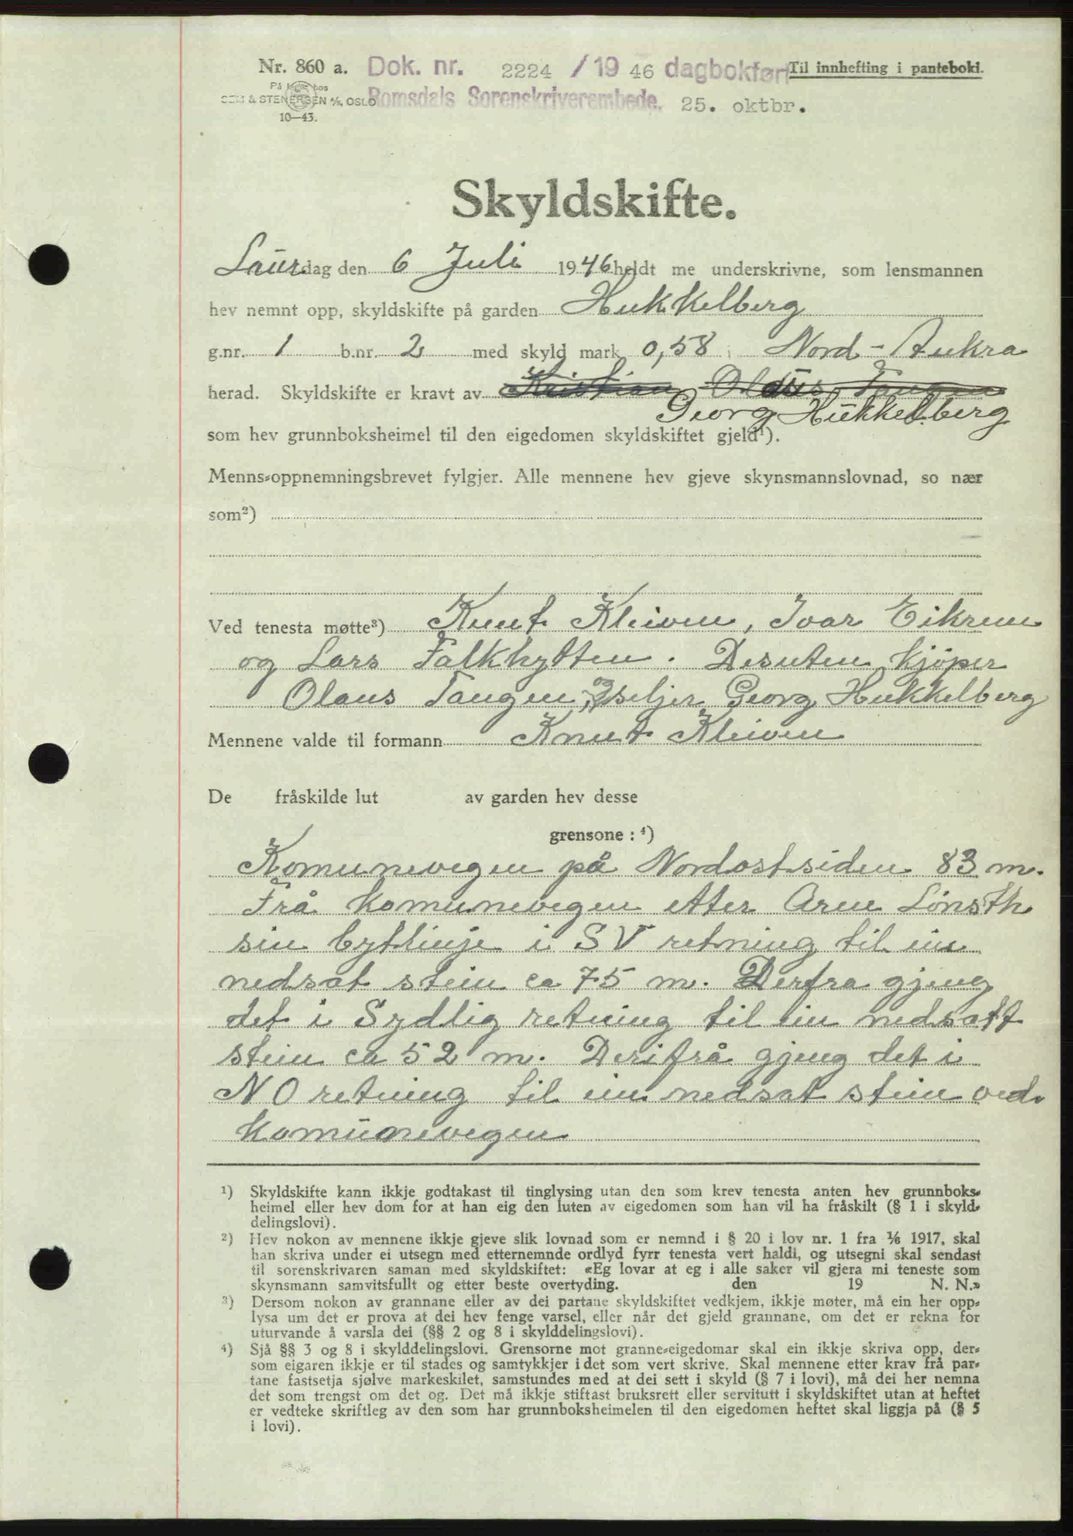 Nr. 860 a. Dok. nr. 2224 /19 46 dagbokført Til innhefting i panteboki.
SEM & STENERSEN A/S, OSLO Romsdals Sorenskriverembede. 25. oktbr.
10—43.
Skyldskifte.
Laurdag den 6 Juli 1946 heldt me underskrivne, som lensmannen
hev nemnt opp, skyldskifte på garden Hukkelberg
g.nr. 1 b.nr. 2 med skyld mark 0,58 i Nord-Aukra
herad. Skyldskifte er kravt av Kristian Olaus Tangen
Georg Hukkelberg
som hev grunnboksheimel til den eigedomen skyldskiftet gjeld¹).
Menns-oppnemningsbrevet fylgjer. Alle mennene hev gjeve skynsmannslovnad, so nær
som²)
Ved tenesta møtte³) Knut Kleiven, Ivar Eikrem
og Lars Falkhytten. Desuten kjöper
Olaus Tangen, og seljer Georg Hukkelberg
Mennene valde til formann Knut Kleiven
De fråskilde lut av garden hev desse
grensone : ⁴)
Komunevegen på Nordostsiden 83 m.
Frå komunevegen etter Arne Lönseth
sin bytlinje i SV retning til ein
nedsat stein ca 75 m. Derfra gjeng
det i Sydlig retning til ein nedsatt
stein ca 52 m. Derifrå gjeng det i
NO retning til ein nedsat stein ved
komunevegen
¹) Skyldskifte kann ikkje godtakast til tinglysing utan den som krev tenesta anten hev grunnboks-
heimel eller hev dom for at han eig den luten av eigedomen som han vil ha fråskilt (§ 1 i skyld-
delingslovi).
²) Hev nokon av mennene ikkje gjeve slik lovnad som er nemnd i § 20 i lov nr. 1 fra ⅙ 1917, skal
han skriva under ei utsegn med etternemnde ordlyd fyrr tenesta vert haldi, og utsegni skal sendast
til sorenskrivaren saman med skyldskiftet: «Eg lovar at eg i alle saker vil gjera mi teneste som
skynsmann samvitsfullt og etter beste overtyding. den 19 N. N.»
³) Dersom nokon av grannane eller av dei partane skyldskiftet vedkjem, ikkje møter, må ein her opp-
lysa um det er prova at dei hev fenge varsel, eller når det gjeld grannane, om det er rekna for
uturvande å varsla dei (§§ 2 og 8 i skylddelingslovi).
⁴) Sjå §§ 3 og 8 i skylddelingslovi. Grensorne mot granne-eigedomar skal ein ikkje skriva opp, der-
som eigaren ikkje er til stades og samtykkjer i det som vert skrive. Skal mennene etter krav frå par-
tane fastsetja sjølve markeskilet, samstundes med at dei sett i skyld (§ 7 i lovi), må dei her nemna
det som trengst om det og. Det må ikkje stiftast bruksrett eller servitutt i skyldskiftet utan at heftet
er vedteke skriftleg av den som har grunnboksheimelen til den eigedomen heftet skal liggja på (§ 5
i lovi).